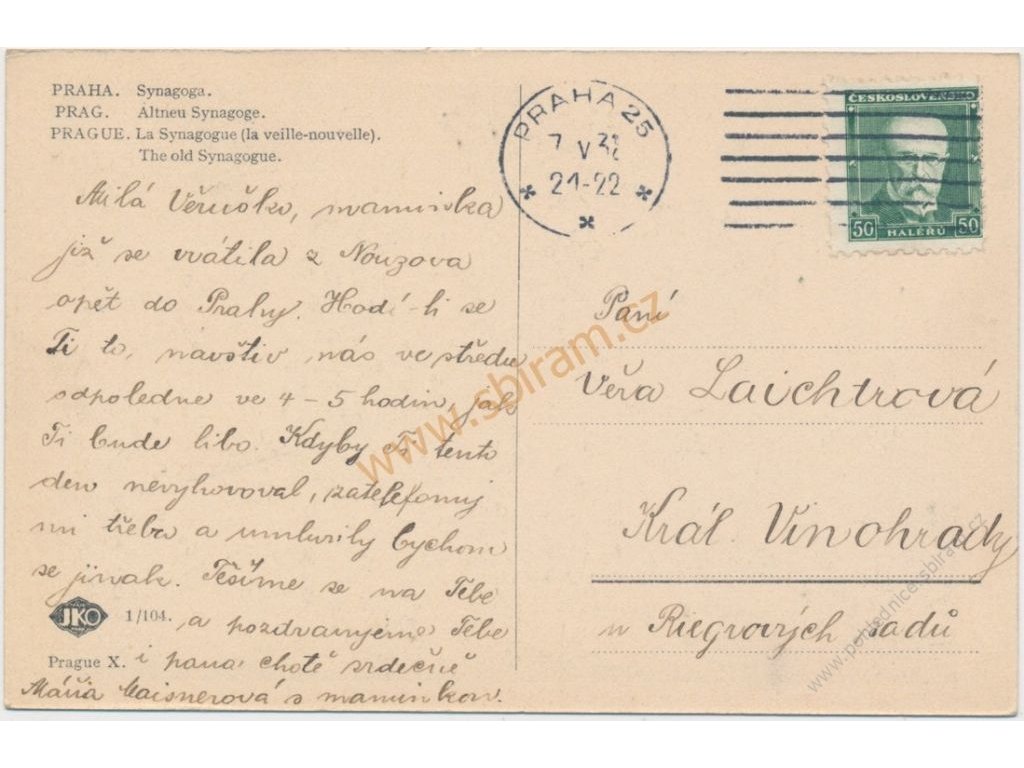 PRAHA. Synagoga.
PRAG. Altneu Synagoge.
PRAGUE. La Synagogue (la veille-nouvelle).
The old Synagogue.
PRAHA 25
7 V 32
21-22
ČESKOSLOVENSKO
50 HALÉŘŮ 50
Milá Věruško, maminka
již se vrátila z Nouzova
opět do Prahy. Hodí-li se
Ti to, navštiv nás ve středu
odpoledne ve 4-5 hodin, jak
Ti bude libo. Kdyby eš tento
den nevyhovoval, zatelefonuj
mi třeba a umluvily bychom
se jinak. Těšíme se na Tebe
a pozdravujeme Tebe
i pana chotě srdečně
Máňa Maisnerová s maminkou.
JKO
1/104.
Prague X.
Paní
Věra Laichtrová
Král. Vinohrady
u Riegrových sadů
www.sbiram.cz
www.pohlednice-sbiram.cz